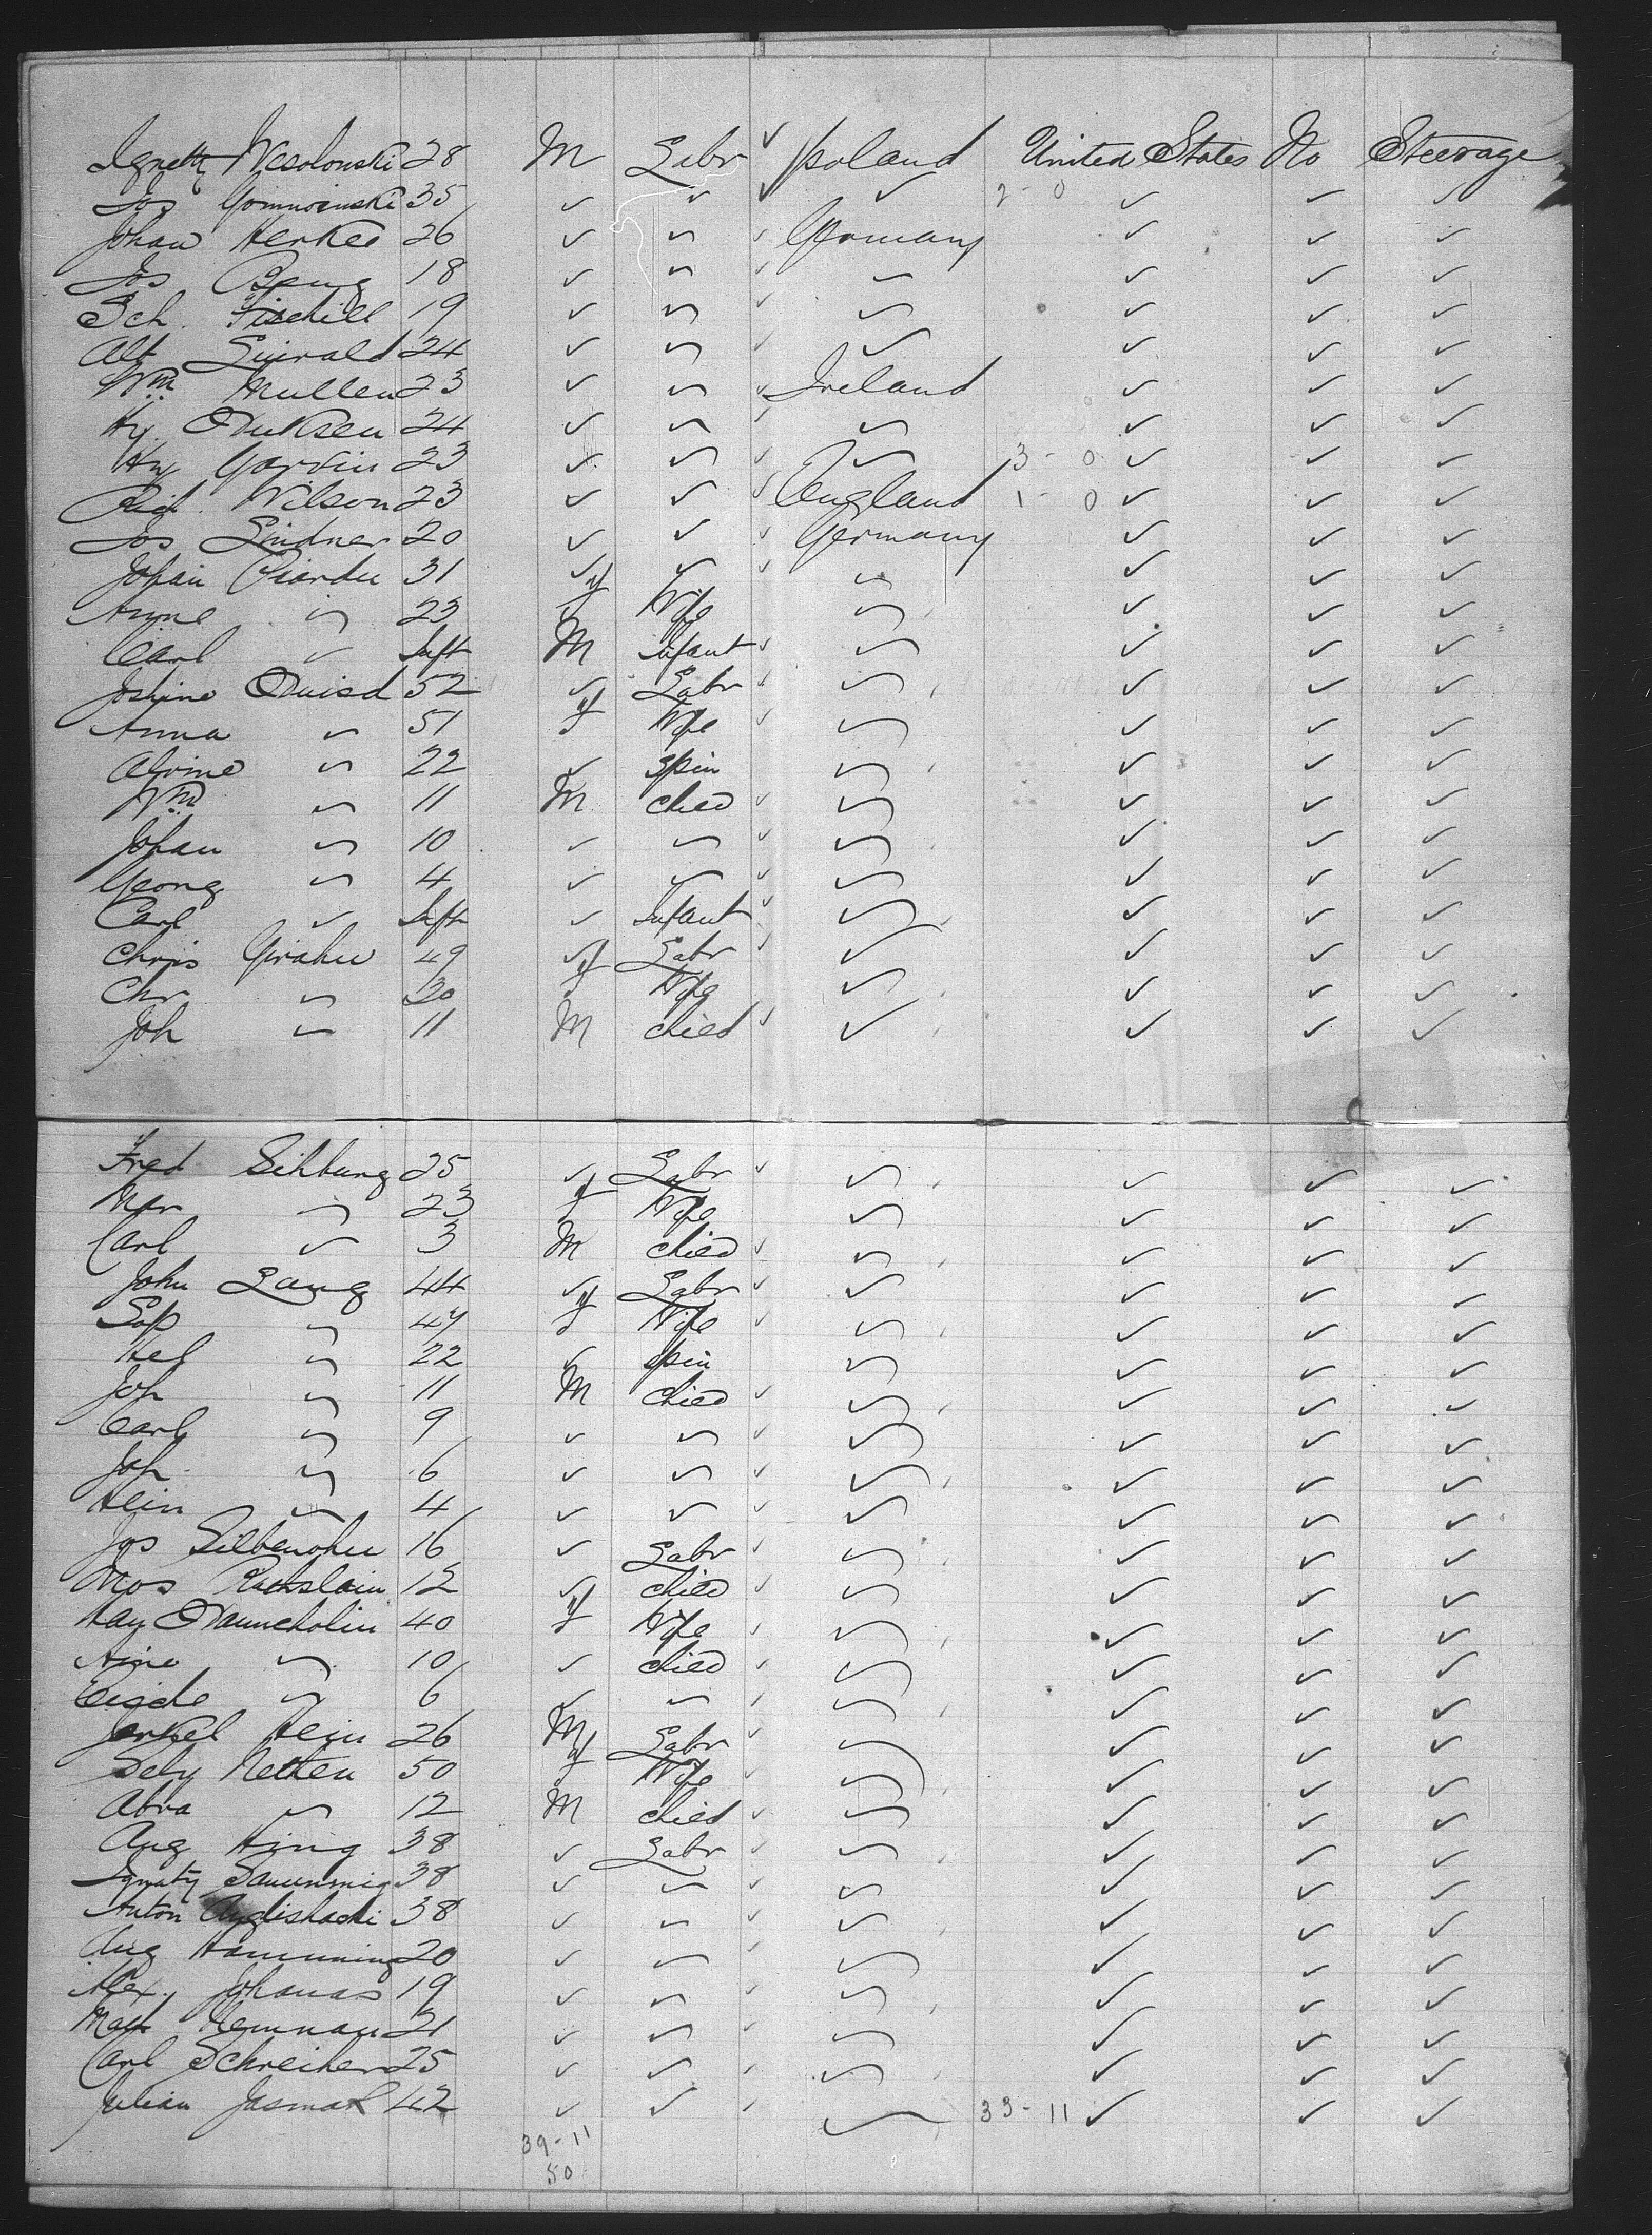 Ignatz Wesolonski 28 M Labr ✓ Poland United States No Steerage
Jos 35 ✓ ✓ ✓ ✓ 2-0 ✓ ✓ ✓
Johan Herkes 26 ✓ ✓ ✓ Germany ✓ ✓ ✓
Jos 18 ✓ ✓ ✓ ✓ ✓ ✓ ✓
Sch. Fischill 19 ✓ ✓ ✓ ✓ ✓ ✓ ✓
Alt 24 ✓ ✓ ✓ ✓ ✓ ✓ ✓
Wm Mullen 23 ✓ ✓ ✓ Ireland ✓ ✓ ✓
Hy. 24 ✓ ✓ ✓ ✓ ✓ ✓ ✓
Hy Garvin 23 ✓ ✓ ✓ ✓ 3-0 ✓ ✓ ✓
Rid. Wilson 23 ✓ ✓ ✓ England 1-0 ✓ ✓ ✓
Jos Lindner 20 ✓ ✓ ✓ Germany ✓ ✓ ✓
Johan 31 ✓ ✓ ✓ ✓ ✓ ✓ ✓
Anne " 23 f Wife ✓ ✓ ✓ ✓
Carl " Inft M Infant ✓ ✓ ✓ ✓ ✓
52 ✓ Labr ✓ ✓ ✓ ✓ ✓
Anna " 51 f Wife ✓ ✓ ✓ ✓ ✓
Alvine " 22 ✓ Spin ✓ ✓ ✓ ✓
Wm " 11 M child ✓ ✓ ✓ ✓ ✓
Johan " 10 ✓ ✓ ✓ ✓ ✓ ✓ ✓
Georg " 4 ✓ ✓ ✓ ✓ ✓ ✓ ✓
Carl " Inft ✓ Infant ✓ ✓ ✓ ✓ ✓
Chris 49 ✓ Labr ✓ ✓ ✓ ✓ ✓
Chr " 30 f Wife ✓ ✓ ✓ ✓
Joh " 11 M child ✓ ✓ ✓ ✓ ✓
Fred Sihburg 25 ✓ Labr ✓ ✓ ✓ ✓ ✓
Mar " 23 f Wife ✓ ✓ ✓ ✓
Carl " 3 M child ✓ ✓ ✓ ✓ ✓
John Lang 44 ✓ Labr ✓ ✓ ✓ ✓ ✓
Sop " 47 f Wife ✓ ✓ ✓ ✓ ✓
Hel " 22 ✓ spin ✓ ✓ ✓ ✓
Joh " 11 M child ✓ ✓ ✓ ✓ ✓
Carl " 9 ✓ ✓ ✓ ✓ ✓ ✓ ✓
Joh " 6 ✓ ✓ ✓ ✓ ✓ ✓ ✓
Hein " 4 ✓ ✓ ✓ ✓ ✓ ✓ ✓
Jos 16 ✓ Labr ✓ ✓ ✓ ✓ ✓
Mos 12 ✓ child ✓ ✓ ✓ ✓ ✓
40 f Wife ✓ ✓ ✓ ✓ ✓
" 10 ✓ child ✓ ✓ ✓ ✓ ✓
" 6 ✓ ✓ ✓ ✓ ✓ ✓ ✓
Jankel Hein 26 M Labr ✓ ✓ ✓ ✓
Nethen 50 f Wife ✓ ✓ ✓ ✓
Abra " 12 M child ✓ ✓ ✓ ✓ ✓
Aug 38 ✓ Labr ✓ ✓ ✓ ✓ ✓
Ignatz 38 ✓ ✓ ✓ ✓ ✓ ✓ ✓
Anton 38 ✓ ✓ ✓ ✓ ✓ ✓ ✓
Aug 20 ✓ ✓ ✓ ✓ ✓ ✓ ✓
Alex. Johanas 19 ✓ ✓ ✓ ✓ ✓ ✓ ✓
21 ✓ ✓ ✓ ✓ ✓ ✓ ✓
Carl Schreiber 25 ✓ ✓ ✓ ✓ ✓ ✓ ✓
Julian 42 ✓ ✓ ✓ ✓ 33-11 ✓ ✓ ✓
39-11
50